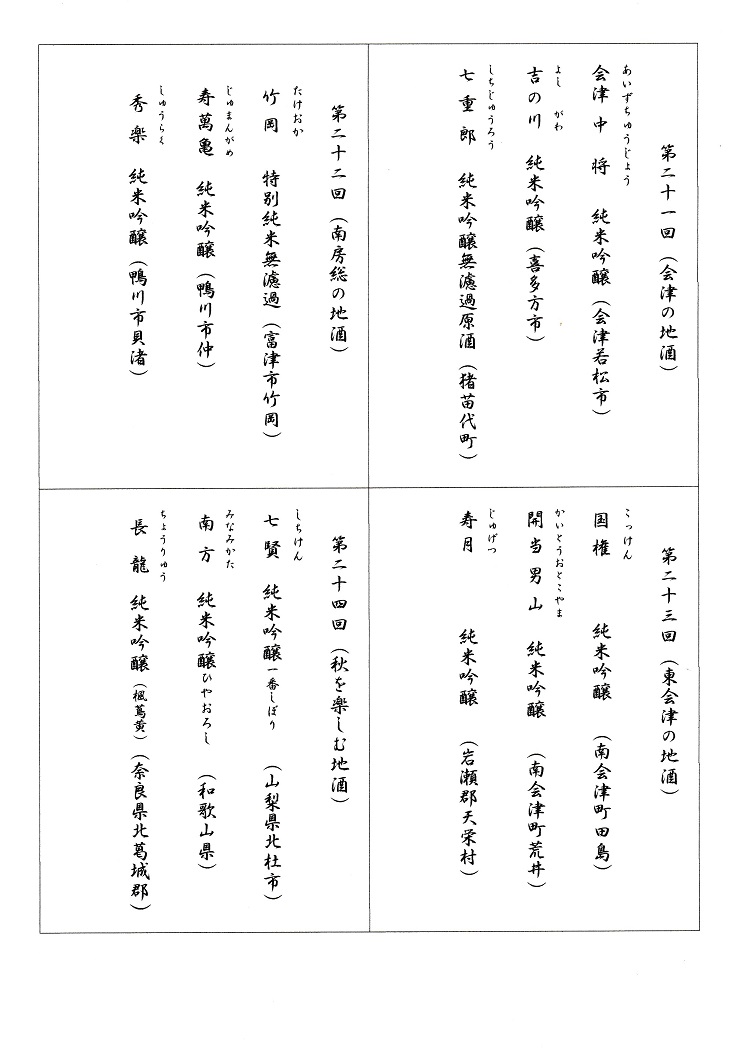 第二十一回（会津の地酒）
あいずちゅうじょう
会津中将 純米吟醸（会津若松市）
よし がわ
吉の川 純米吟醸（喜多方市）
しちじゅうろう
七重郎 純米吟醸無濾過原酒（猪苗代町）
第二十二回（南房総の地酒）
たけおか
竹岡 特別純米無濾過（富津市竹岡）
じゅまんがめ
寿萬亀 純米吟醸（鴨川市仲）
しゅうらく
秀楽 純米吟醸（鴨川市貝渚）
第二十三回（東会津の地酒）
こっけん
国権 純米吟醸（南会津町田島）
かいとうおとこやま
開当男山 純米吟醸（南会津町荒井）
じゅげつ
寿月 純米吟醸（岩瀬郡天栄村）
第二十四回（秋を楽しむ地酒）
しちけん
七賢 純米吟醸一番しぼり（山梨県北杜市）
みなみかた
南方 純米吟醸ひやおろし（和歌山県）
ちょうりゅう
長龍 純米吟醸（楓蔦黄）（奈良県北葛城郡）